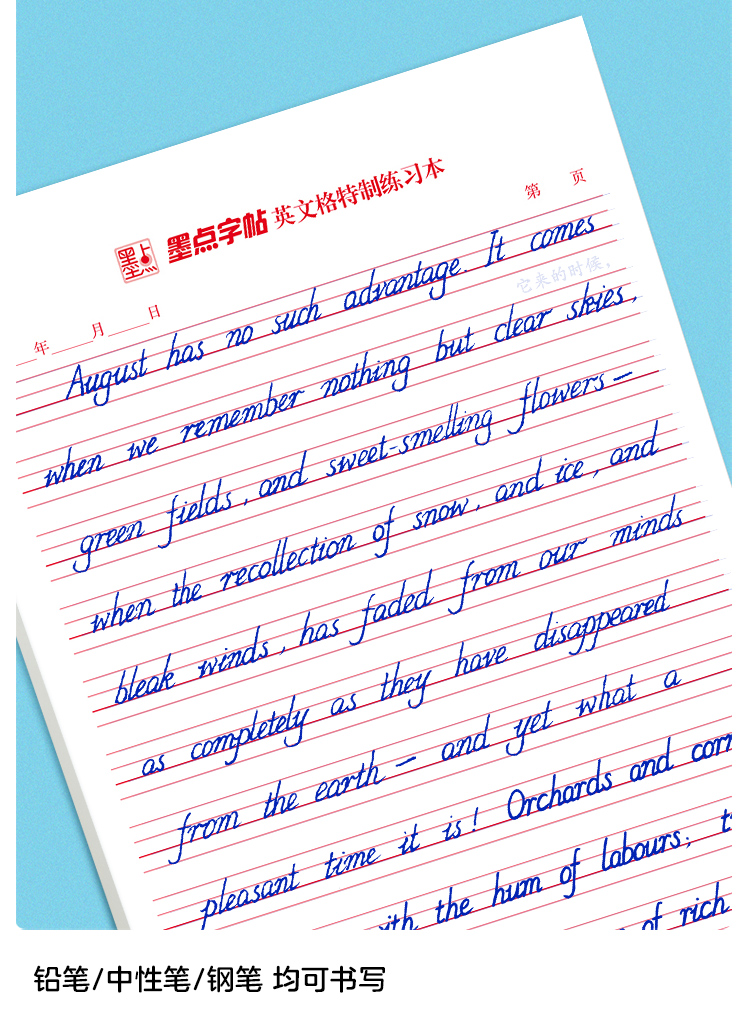 墨点 墨点字帖 英文格特制练习本
第 页
年 月 日
August has no such advantage. It comes
它来的时候,
when we remember nothing but clear skies,
green fields, and sweet-smelling flowers—
when the recollection of snow, and ice, and
bleak winds, has faded from our minds
as completely as they have disappeared
from the earth — and yet what a
pleasant time it is! Orchards and corn
the hum of labours;
of rich
铅笔/中性笔/钢笔 均可书写